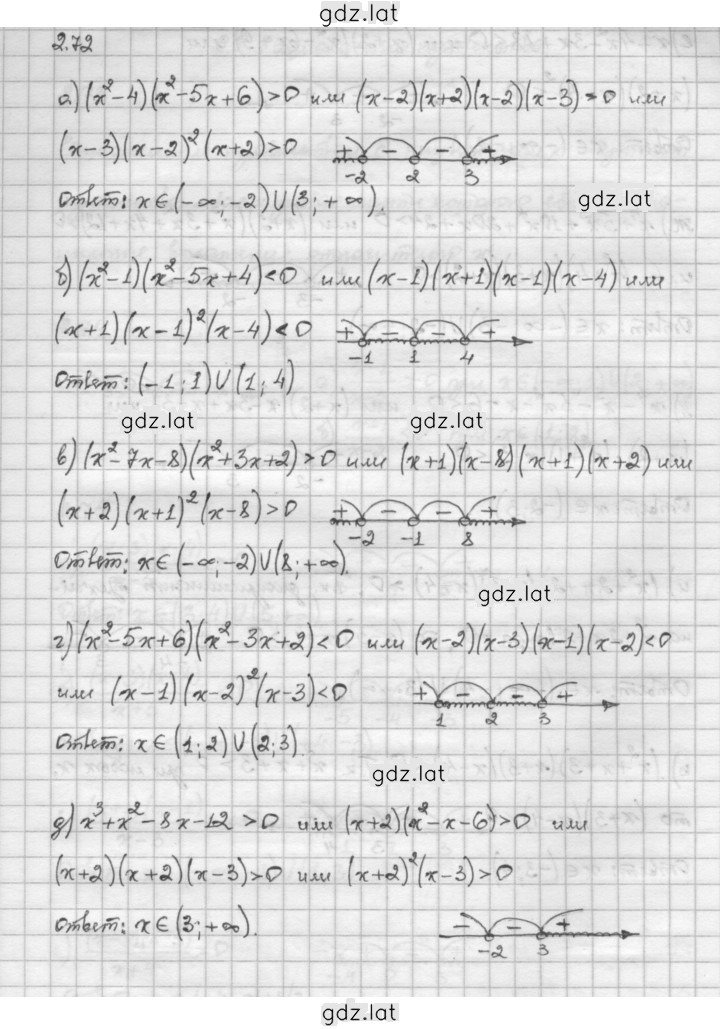 gdz.lat
2.72
а) (x²-4)(x²-5x+6)>0 или (x-2)(x+2)(x-2)(x-3)>0 или
(x-3)(x-2)²(x+2)>0 + - - + -2 2 3
Ответ: x∈(-∞;-2)∪(3;+∞). gdz.lat
б) (x²-1)(x²-5x+4)<0 или (x-1)(x+1)(x-1)(x-4) или
(x+1)(x-1)²(x-4)<0 + - - + -1 1 4
Ответ: (-1;1)∪(1;4)
gdz.lat gdz.lat
в) (x²-7x-8)(x²+3x+2)>0 или (x+1)(x-8)(x+1)(x+2) или
(x+2)(x+1)²(x-8)>0 + - - + -2 -1 8
Ответ: x∈(-∞;-2)∪(8;+∞).
gdz.lat
г) (x²-5x+6)(x²-3x+2)<0 или (x-2)(x-3)(x-1)(x-2)<0
или (x-1)(x-2)²(x-3)<0 + - - + 1 2 3
Ответ: x∈(1;2)∪(2;3).
gdz.lat
д) x³+x²-8x-12>0 или (x+2)(x²-x-6)>0 или
(x+2)(x+2)(x-3)>0 или (x+2)²(x-3)>0
Ответ: x∈(3;+∞). - - + -2 3
gdz.lat